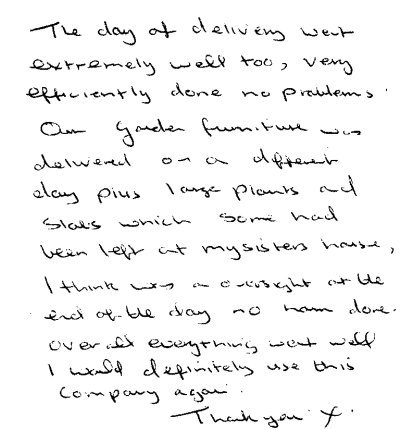 The day of delivery went
extremely well too, very
efficiently done no problems.
Our garden furniture was
delivered on a different
day plus large plants and
slabs which some had
been left at my sisters house,
I think was a oversight at the
end of the day no harm done.
Over all everything went well
I would definitely use this
company again.
Thank you X.